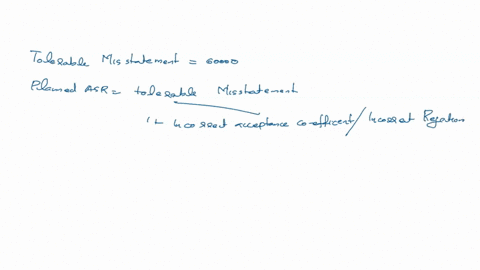 Tolerable Misstatement = 60000
Planned ASR = tolerable Misstatement
1+ Incorrect acceptance coefficient / Incorrect Rejection